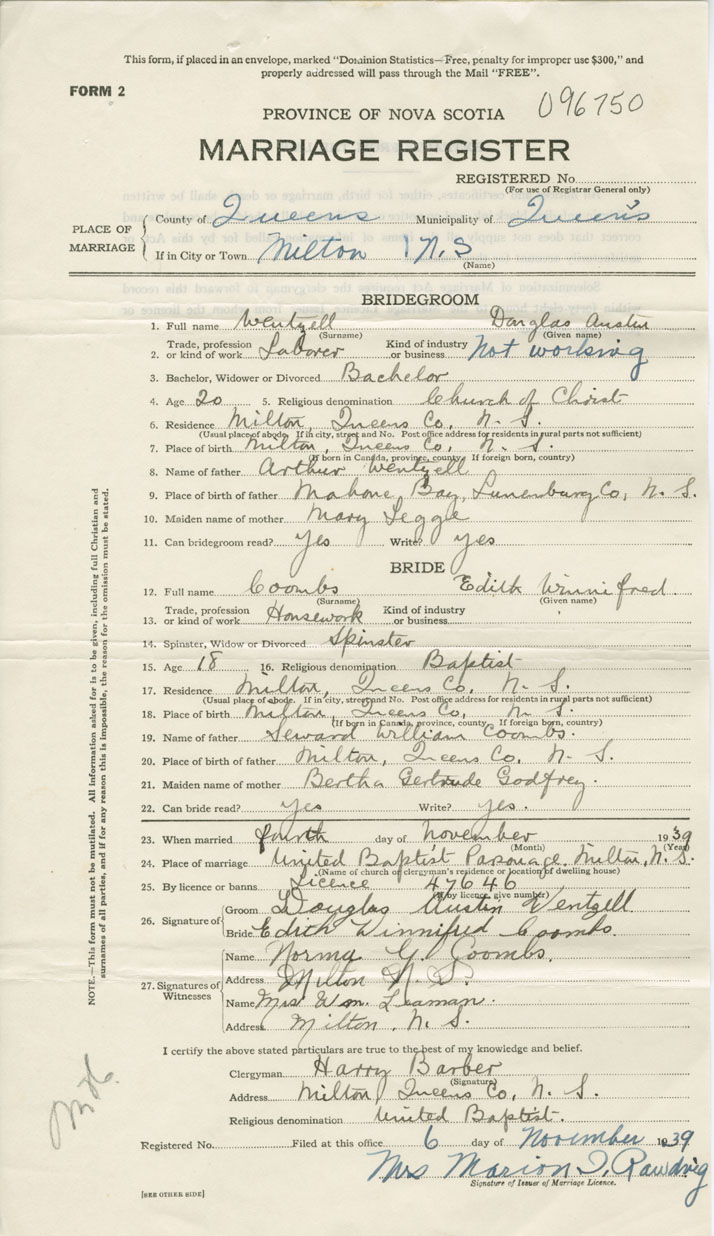 This form, if placed in an envelope, marked "Dominion Statistics—Free, penalty for improper use $300," and
properly addressed will pass through the Mail "FREE".
FORM 2
096750
PROVINCE OF NOVA SCOTIA
MARRIAGE REGISTER
REGISTERED No.
(For use of Registrar General only)
PLACE OF MARRIAGE
County of Queens Municipality of Queen's
If in City or Town Milton N.S
(Name)
BRIDEGROOM
1. Full name Wentzell Douglas Austin
(Surname) (Given name)
2. Trade, profession or kind of work Laborer Kind of industry or business Not working
3. Bachelor, Widower or Divorced Bachelor
4. Age 20 5. Religious denomination Church of Christ
6. Residence Milton, Queens Co, N. S.
(Usual place of abode. If in city, street and No. Post office address for residents in rural parts not sufficient)
7. Place of birth Milton, Queens Co, N. S.
(If born in Canada, province, county. If foreign born, country)
8. Name of father Arthur Wentzell
9. Place of birth of father Mahone Bay, Lunenburg Co, N. S.
10. Maiden name of mother Mary Legge
11. Can bridegroom read? Yes Write? yes
BRIDE
12. Full name Coombs Edith Winnifred
(Surname) (Given name)
13. Trade, profession or kind of work Housework Kind of industry or business
14. Spinster, Widow or Divorced Spinster
15. Age 18 16. Religious denomination Baptist
17. Residence Milton, Queens Co, N. S.
(Usual place of abode. If in city, street and No. Post office address for residents in rural parts not sufficient)
18. Place of birth Milton, Queens Co, N. S.
(If born in Canada, province, county. If foreign born, country)
19. Name of father Seward William Coombs.
20. Place of birth of father Milton, Queens Co, N. S.
21. Maiden name of mother Bertha Gertrude Godfrey.
22. Can bride read? yes Write? yes.
23. When married fourth day of November 1939
(Month) (Year)
24. Place of marriage United Baptist Parsonage, Milton, N. S.
(Name of church or clergyman's residence or location of dwelling house)
25. By licence or banns Licence 47646
(If by licence, give number)
26. Signature of
Groom Douglas Austin Wentzell
Bride Edith Winnifred Coombs.
27. Signatures of Witnesses
Name Norma G. Coombs.
Address Milton N. S.
Name Mrs Wm. Leaman.
Address Milton, N. S.
I certify the above stated particulars are true to the best of my knowledge and belief.
Clergyman Harry Barber
(Signature)
Address Milton, Queens Co, N. S.
Religious denomination United Baptist.
Registered No. Filed at this office 6 day of November 1939
Mrs Marion I. Rawding
Signature of Issuer of Marriage Licence.
[SEE OTHER SIDE]
NOTE.—This form must not be mutilated. All information asked for is to be given, including full Christian and
surnames of all parties, and if for any reason this is impossible, the reason for the omission must be stated.